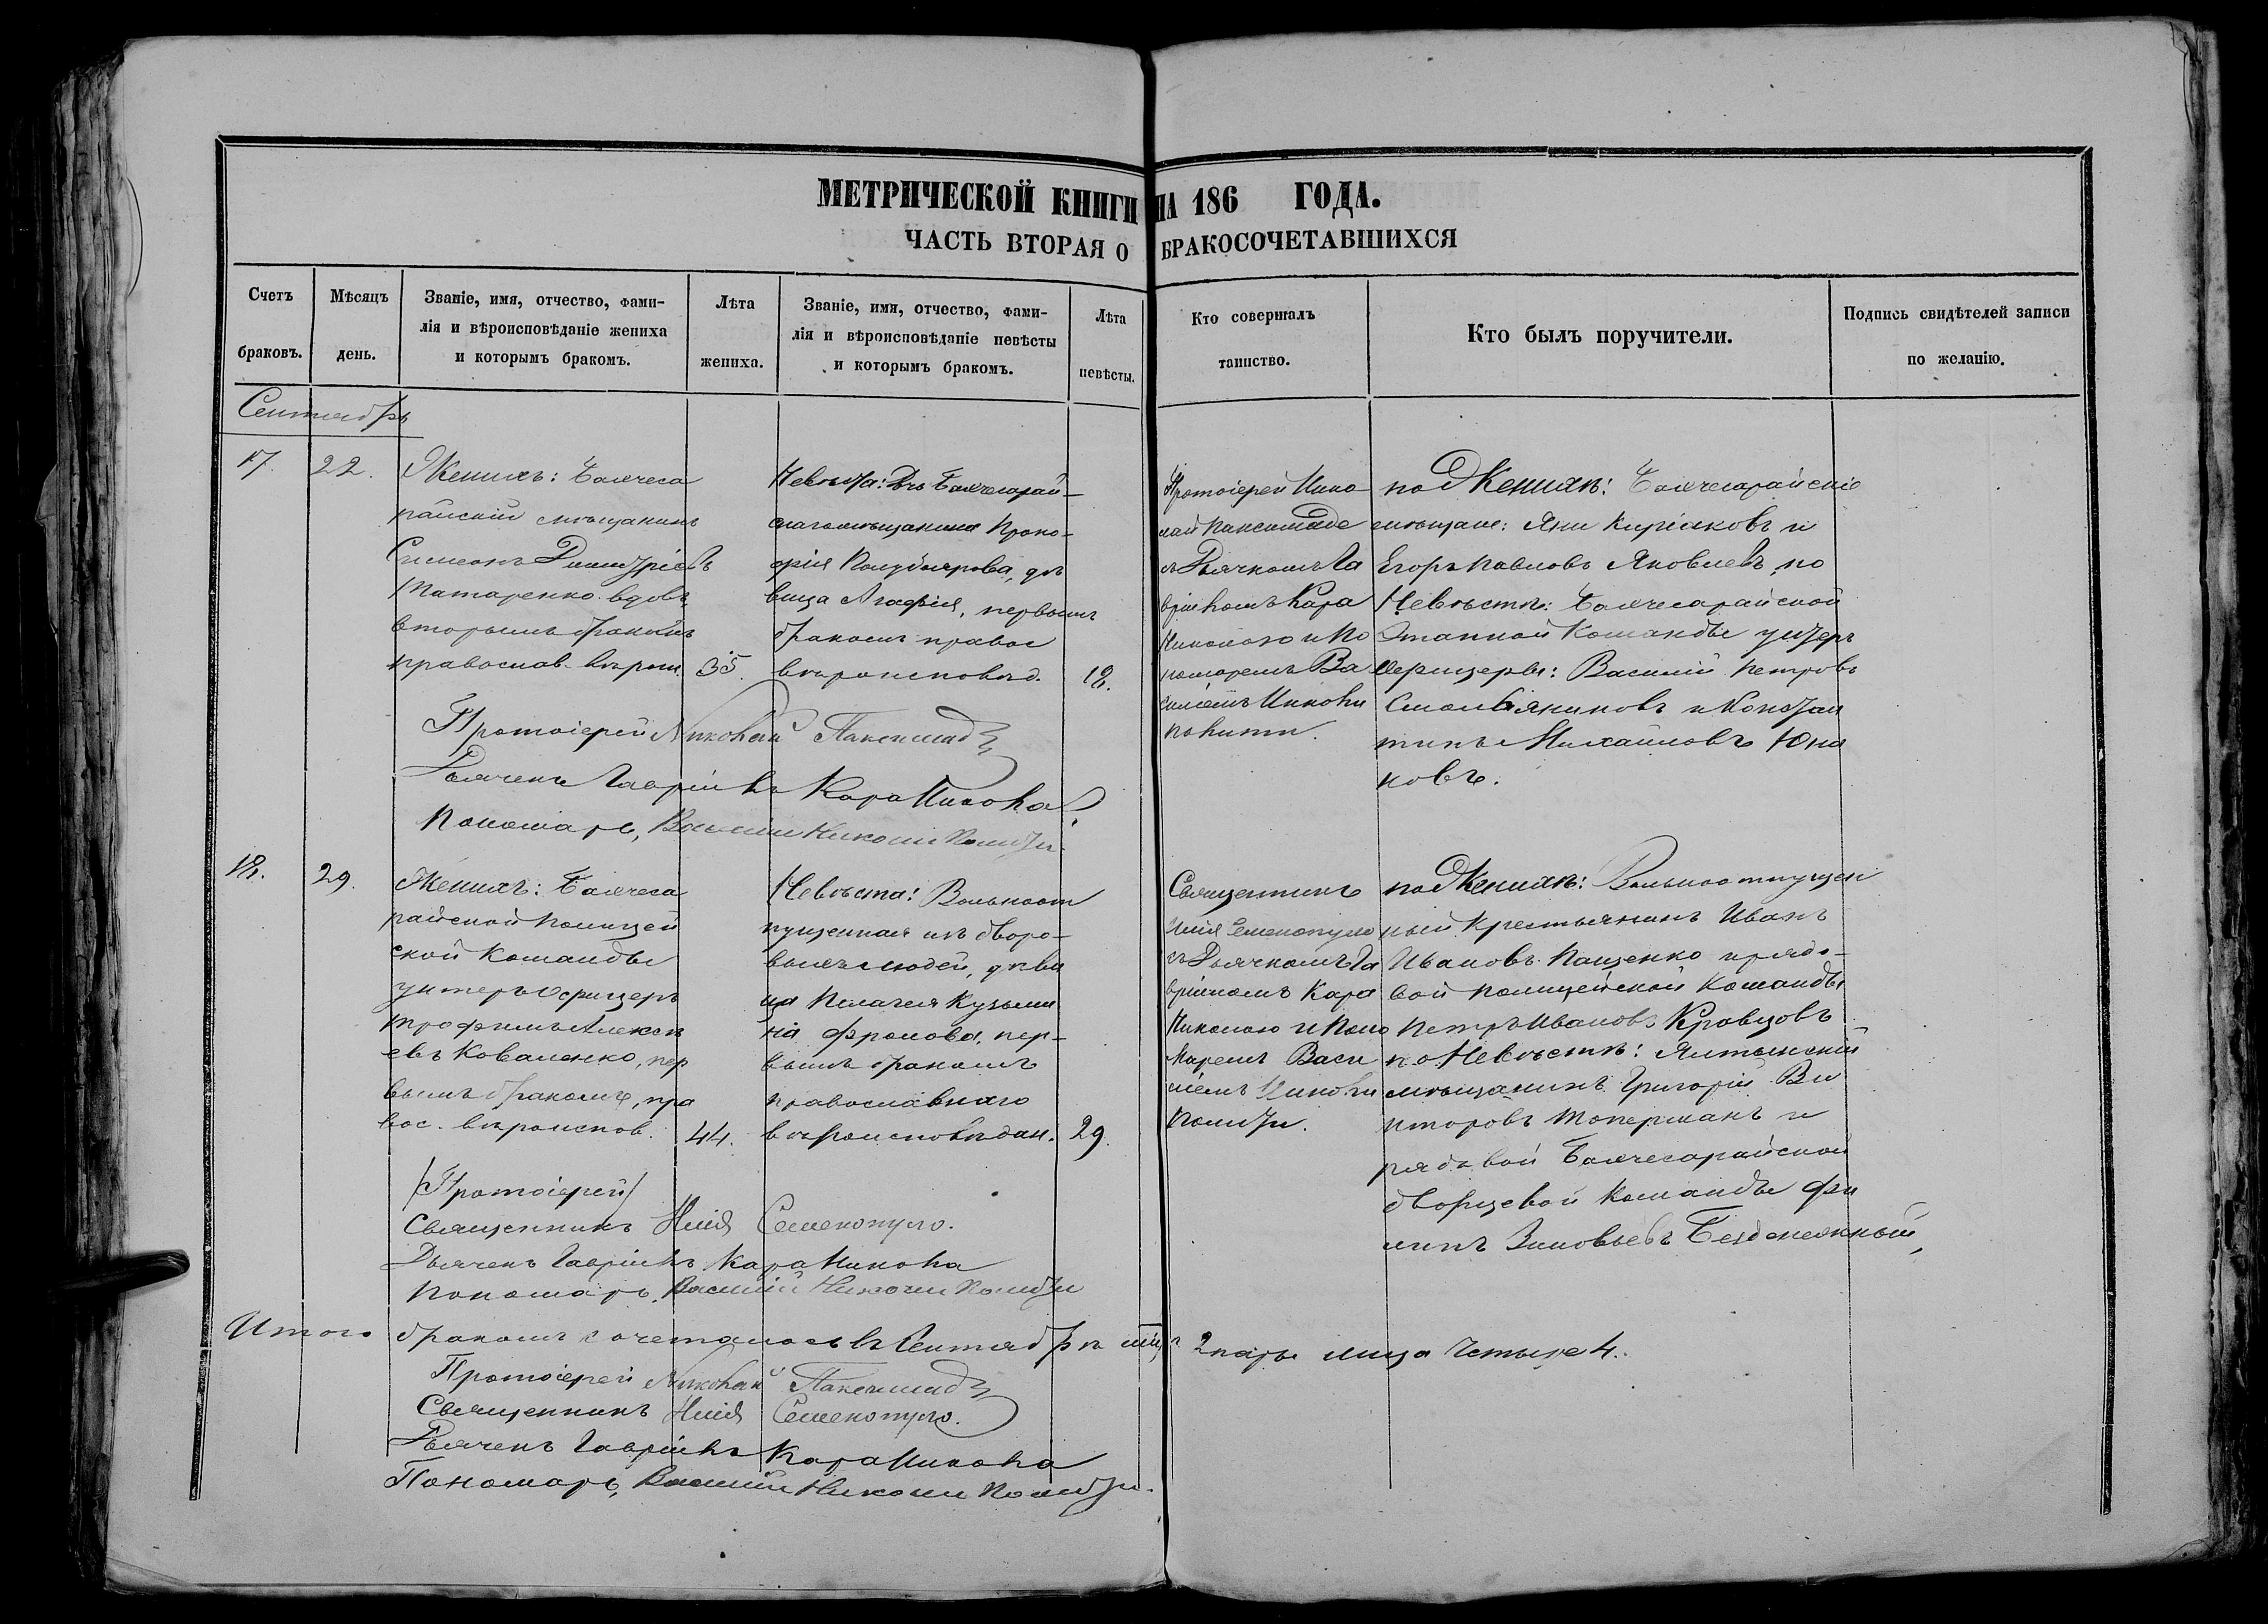 МЕТРИЧЕСКОЙ КНИГИ НА 186 ГОДА.
ЧАСТЬ ВТОРАЯ О БРАКОСОЧЕТАВШИХСЯ
Счетъ браковъ.
Мѣсяцъ день.
Званіе, имя, отчество, фами-
лія и вѣроисповѣданіе жениха
и которымъ бракомъ.
Лѣта жениха.
Званіе, имя, отчество, фами-
лія и вѣроисповѣданіе невѣсты
и которымъ бракомъ.
Лѣта невѣсты.
Кто совершалъ
таинство.
Кто былъ поручители.
Подпись свидѣтелей записи
по желанію.
Сентябрь
17. 22.
Женихъ: Бахчеса
райскій мѣщанинъ
Симеонъ Димитріевъ
Татаренко вдовъ,
вторымъ бракомъ
православ. вѣроис.
35.
Невѣста: Дчь Бахчесарай-
скаго мѣщанина Проко-
фія Полубоярова, дѣ
вица Агафія, первымъ
бракомъ правос
вѣроисповѣд.
18.
Протоіерей Нико
лай
съ Дьячкомъ Га
вріиломъ Кара
Николою и По
номаремъ Ва
силіемъ Николи
Полити.
по Женихѣ: Бахчесарайскіе
мѣщане: Яни Киріаковъ и
Егоръ Павловъ Яковлевъ, по
Невѣстѣ: Бахчесарайской
Этапной Команды унтеръ
Офицеры: Василій Петровъ
и Констан
тинъ Михайловъ Юна
ковъ.
Протоіерей Николай
Дьячекъ Гавріилъ КараНикола
Пономарь, Василій Николи Полити.
18. 29.
Женихъ: Бахчеса
райской Полицей
ской Команды
унтеръ Офицеръ
Трофимъ Алексѣ
евъ Коваленко, пер
вымъ бракомъ, пра
вос. вѣроиспов.
44.
Невѣста: Вольноот
пущенная изъ дворо-
выхъ людей, дѣви
ца Пелагея Кузьми
на Фролова, пер-
вымъ бракомъ
православнаго
вѣроисповѣдан.
29.
Священникъ
Илія Семенопуло
съ Дьячкомъ Га
вріиломъ Кара
Николою и Поно
маремъ Васи
ліемъ Николи
Полити.
по Женихѣ: Вольноотпущен
ный Крестьянинъ Иванъ
Ивановъ Пащенко и рядо-
вой Полицейской Команды
Петръ Ивановъ Кравцовъ
по Невѣстѣ: Ялтинскій
мѣщанинъ Григорій Ви
кторовъ Топерманъ и
рядовой Бахчесарайской
дворцевой Команды Фи
липъ Зиновьевъ Безденежный,
/Протоіерей/
Священникъ Илія Семенопуло.
Дьячекъ Гавріилъ КараНикола
Пономарь, Василій Николи Полити
Итого бракомъ сочеталось въ Сентябрѣ мцѣ 2 пары лица четыре 4.
Протоіерей Николай
Священникъ Илія Семенопуло.
Дьячекъ Гавріилъ КараНикола
Пономарь, Василій Николи Полити.